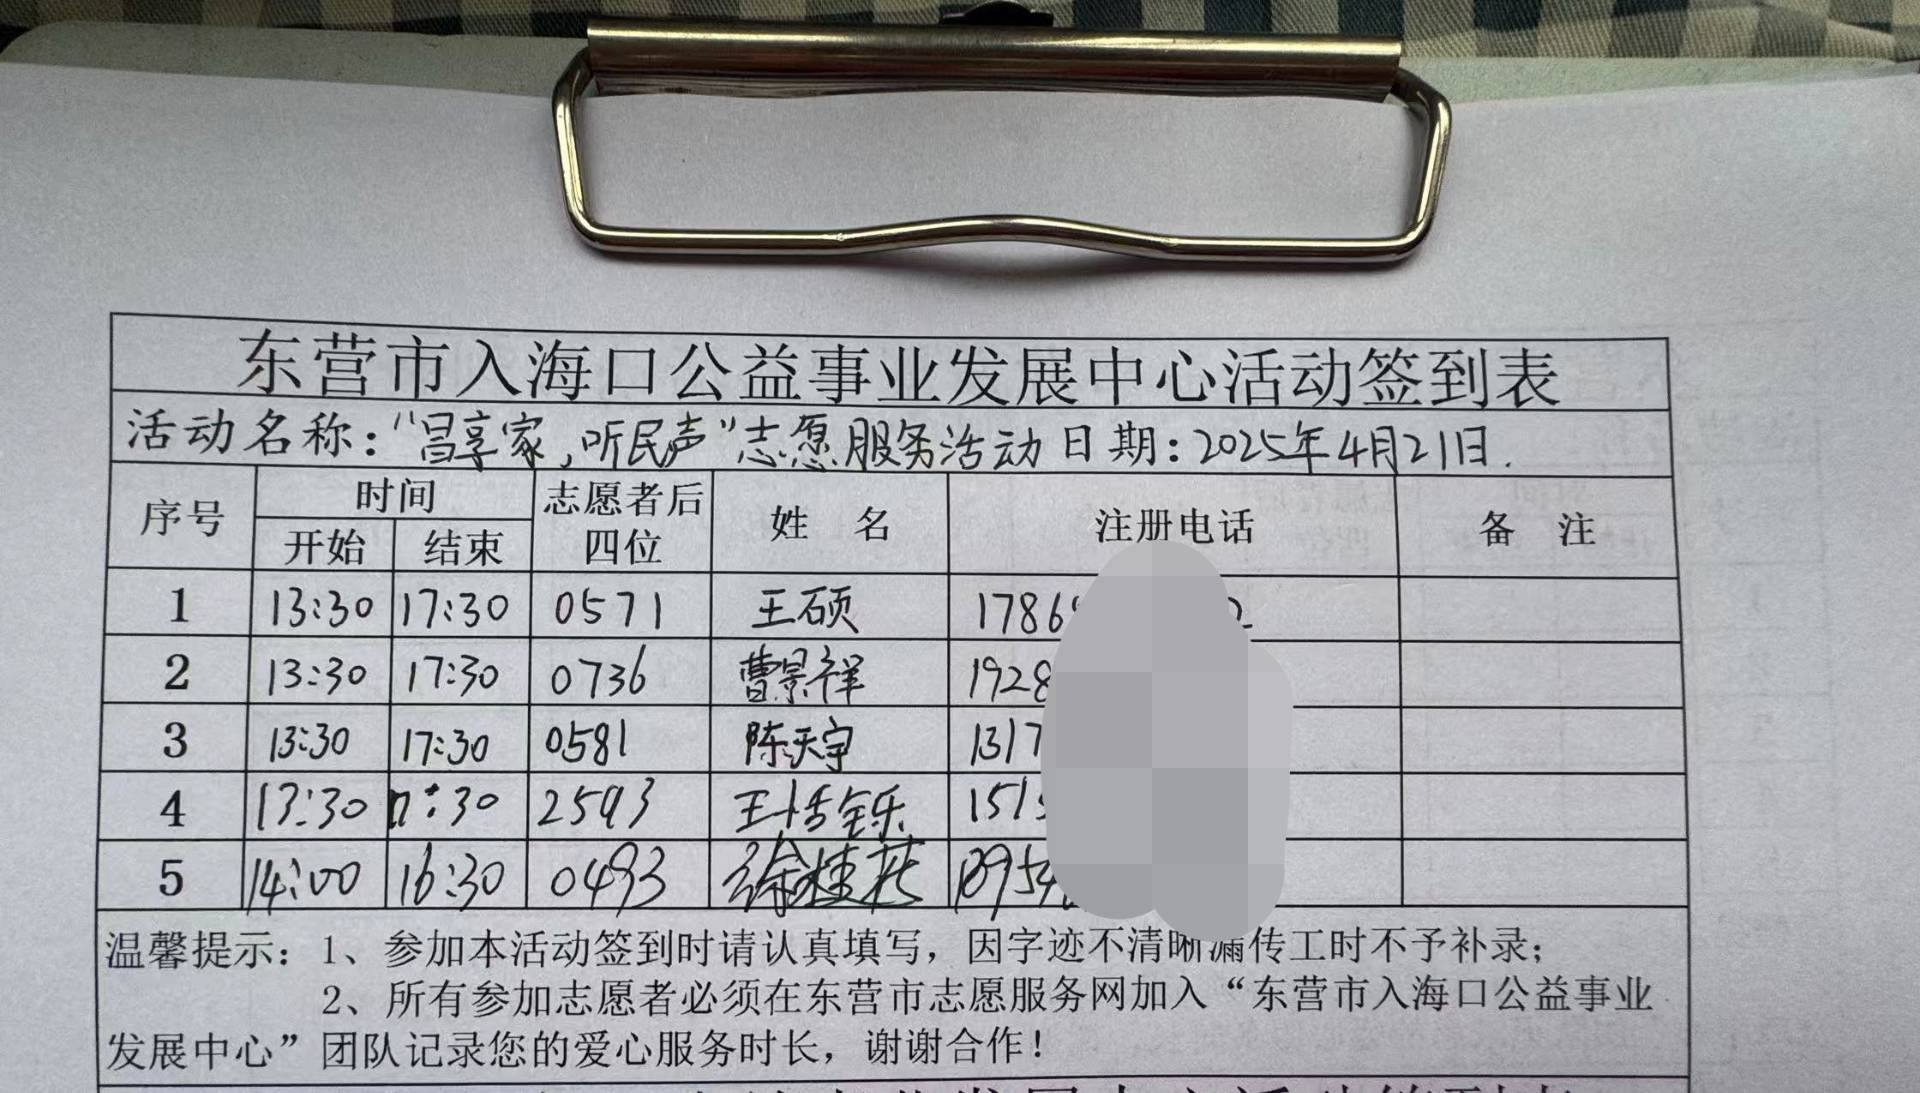 东营市入海口公益事业发展中心活动签到表
活动名称：“昌享家，听民声”志愿服务活动 日期：2025年4月21日.
序号 时间 志愿者后四位 姓 名 注册电话 备 注
开始 结束
1 13:30 17:30 0571 王硕 1786 2
2 13:30 17:30 0736 曹景祥 1928
3 13:30 17:30 0581 陈天宇 1317
4 13:30 17:30 2593 王梧铄 151
5 14:00 16:30 0493 徐桂花 1895
温馨提示：1、参加本活动签到时请认真填写，因字迹不清晰漏传工时不予补录；
2、所有参加志愿者必须在东营市志愿服务网加入“东营市入海口公益事业
发展中心”团队记录您的爱心服务时长，谢谢合作！